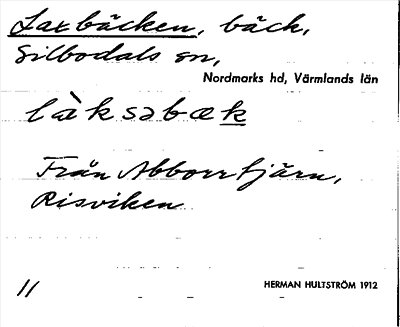 Laxbäcken, bäck,
Silbodals sn,
Nordmarks hd, Värmlands län
làksəbæk
Från Abborrtjärn,
Risviken
11
HERMAN HULTSTRÖM 1912